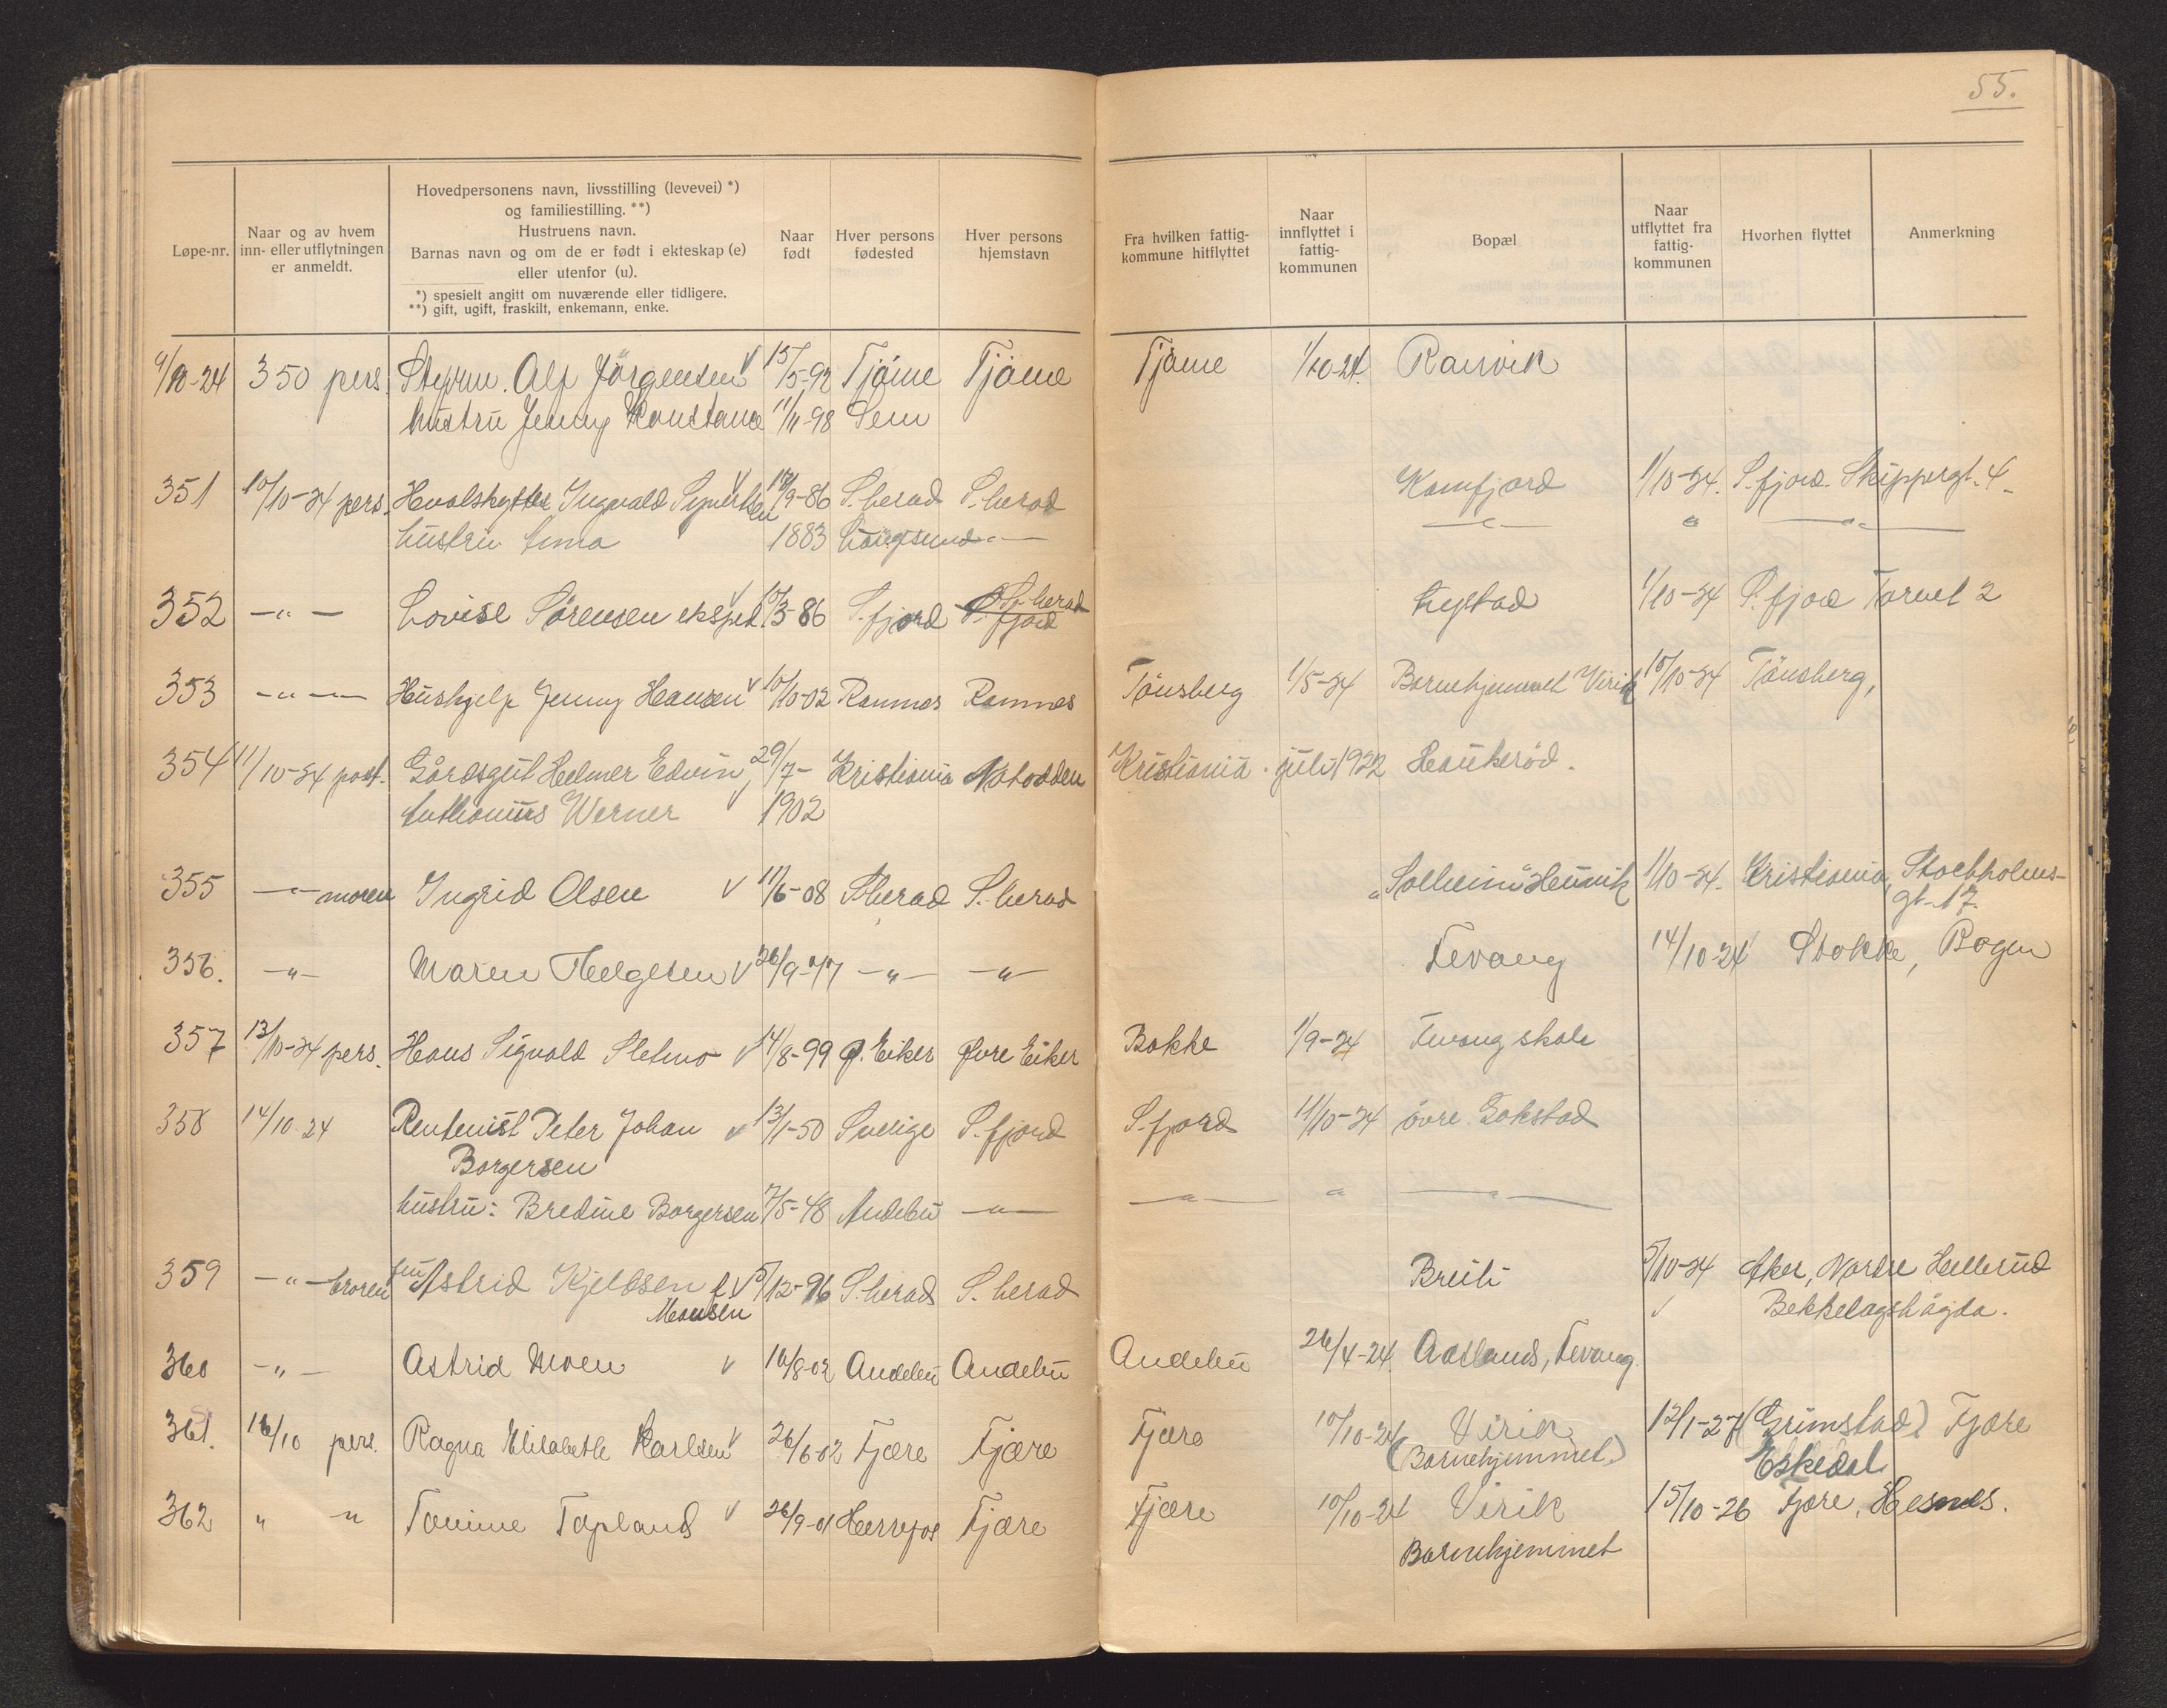 55.
Løpe-nr.
Naar og av hvem
inn- eller utflytningen
er anmeldt.
Hovedpersonens navn, livsstilling (levevei) *)
og familiestilling. **)
Hustruens navn.
Barnas navn og om de er født i ekteskap (e)
eller utenfor (u).
*) spesielt angitt om nuværende eller tidligere.
**) gift, ugift, fraskilt, enkemann, enke.
Naar
født
Hver persons
fødested
Hver persons
hjemstavn
Fra hvilken fattig-
kommune hitflyttet
Naar
innflyttet i
fattig-
kommunen
Bopæl
Naar
utflyttet fra
fattig-
kommunen
Hvorhen flyttet
Anmerkning
9/10-24 350 pers. Styrm. Alf Jörgensen v 15/5-92 Tjöme Tjöme Tjöme 1/10-24. Ranvik
hustru Jenny Konstance 11/11-98 Sem
351 10/10-24 pers. Hvalskytter Ingvald Syvertsen v /9-86 S. herad S. herad Kamfjord 1/10-24. S. fjord. Skippergt. 4
hustru Anna 1883 Langesund -"- -"- " -"-
352 -"- Lovise Sörensen eksped. v /3-86 S. fjord S. fjord S. herad Nystad 1/10-24 S. fjord Torvet 2
353 -"- Hushjelp Jenny Hansen v 10/10-02 Ramnes Ramnes Tönsberg 1/5-24 Barnehjemmet Virik 10/10-24 Tönsberg,
354 11/10-24 post. Gårdsgut Helmer Edvin, 29/7- Kristiania Notodden Kristiania juli 1922 Haukeröd.
Anthonius Werner v 1902
355 -"- moren Ingrid Olsen v 11/6-08 S. herad S. herad "Solheim" Hunvik 1/10-24. Kristiania, Stockholms-
gt. 17.
356. -"- Maren Helgesen v 26/9-77 -"- -"- Tevang 14/10-24 Stokke, Bogen
357 13/10-24 pers. Hans Sigvald Stetmo v 14/8-99 Ø. Eiker Øvre Eiker Bakke 1/9-24 Fevang skole
358 14/10-24 Rentenist Peter Johan v 13/1-50 Sverige S. fjord S. fjord 11/10-24 övre Gokstad
Borgersen
hustru: Bredine Borgersen 7/5-48 Andebu -"- -"- " -"-
359 -"- broren fru Astrid Kjeldsen f. v 5/12-96 S. herad S. herad Breili 5/10-24 Aker, Nordre Hellerud
Hansen v Bekkelagshögda.
360 -"- Astrid Moen v 16/8-02 Andebu Andebu Andebu 26/4-24 Aasland, Fevang.
361. 16/10 pers. Ragna Elisabeth Karlsen v 26/6-02 Fjære Fjære Fjære 10/10-24 Virik 12/1-27 (Grimstad) Fjære
(Barnehjemmet.) Eskedal
362 " " Tomine Topland v 26/9-01 Herefos Fjære Fjære 10/10-24 Virik 15/10-26 Fjære, Hesnes.
Barnehjemmet